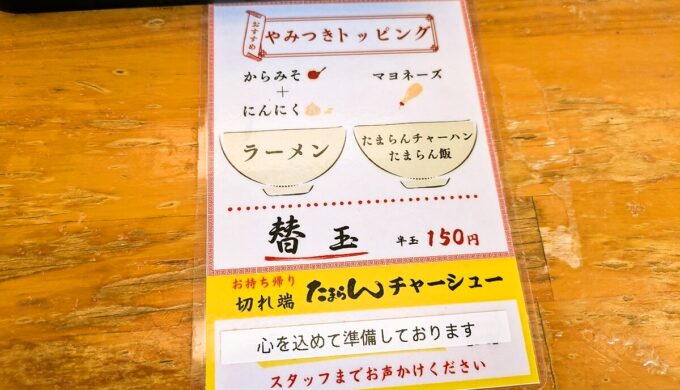 おすすめ
やみつきトッピング
からみそ
+
にんにく
マヨネーズ
ラーメン
たまらんチャーハン
たまらん飯
替玉 半玉 150円
お持ち帰り
切れ端 たまらんチャーシュー
心を込めて準備しております
スタッフまでお声かけください